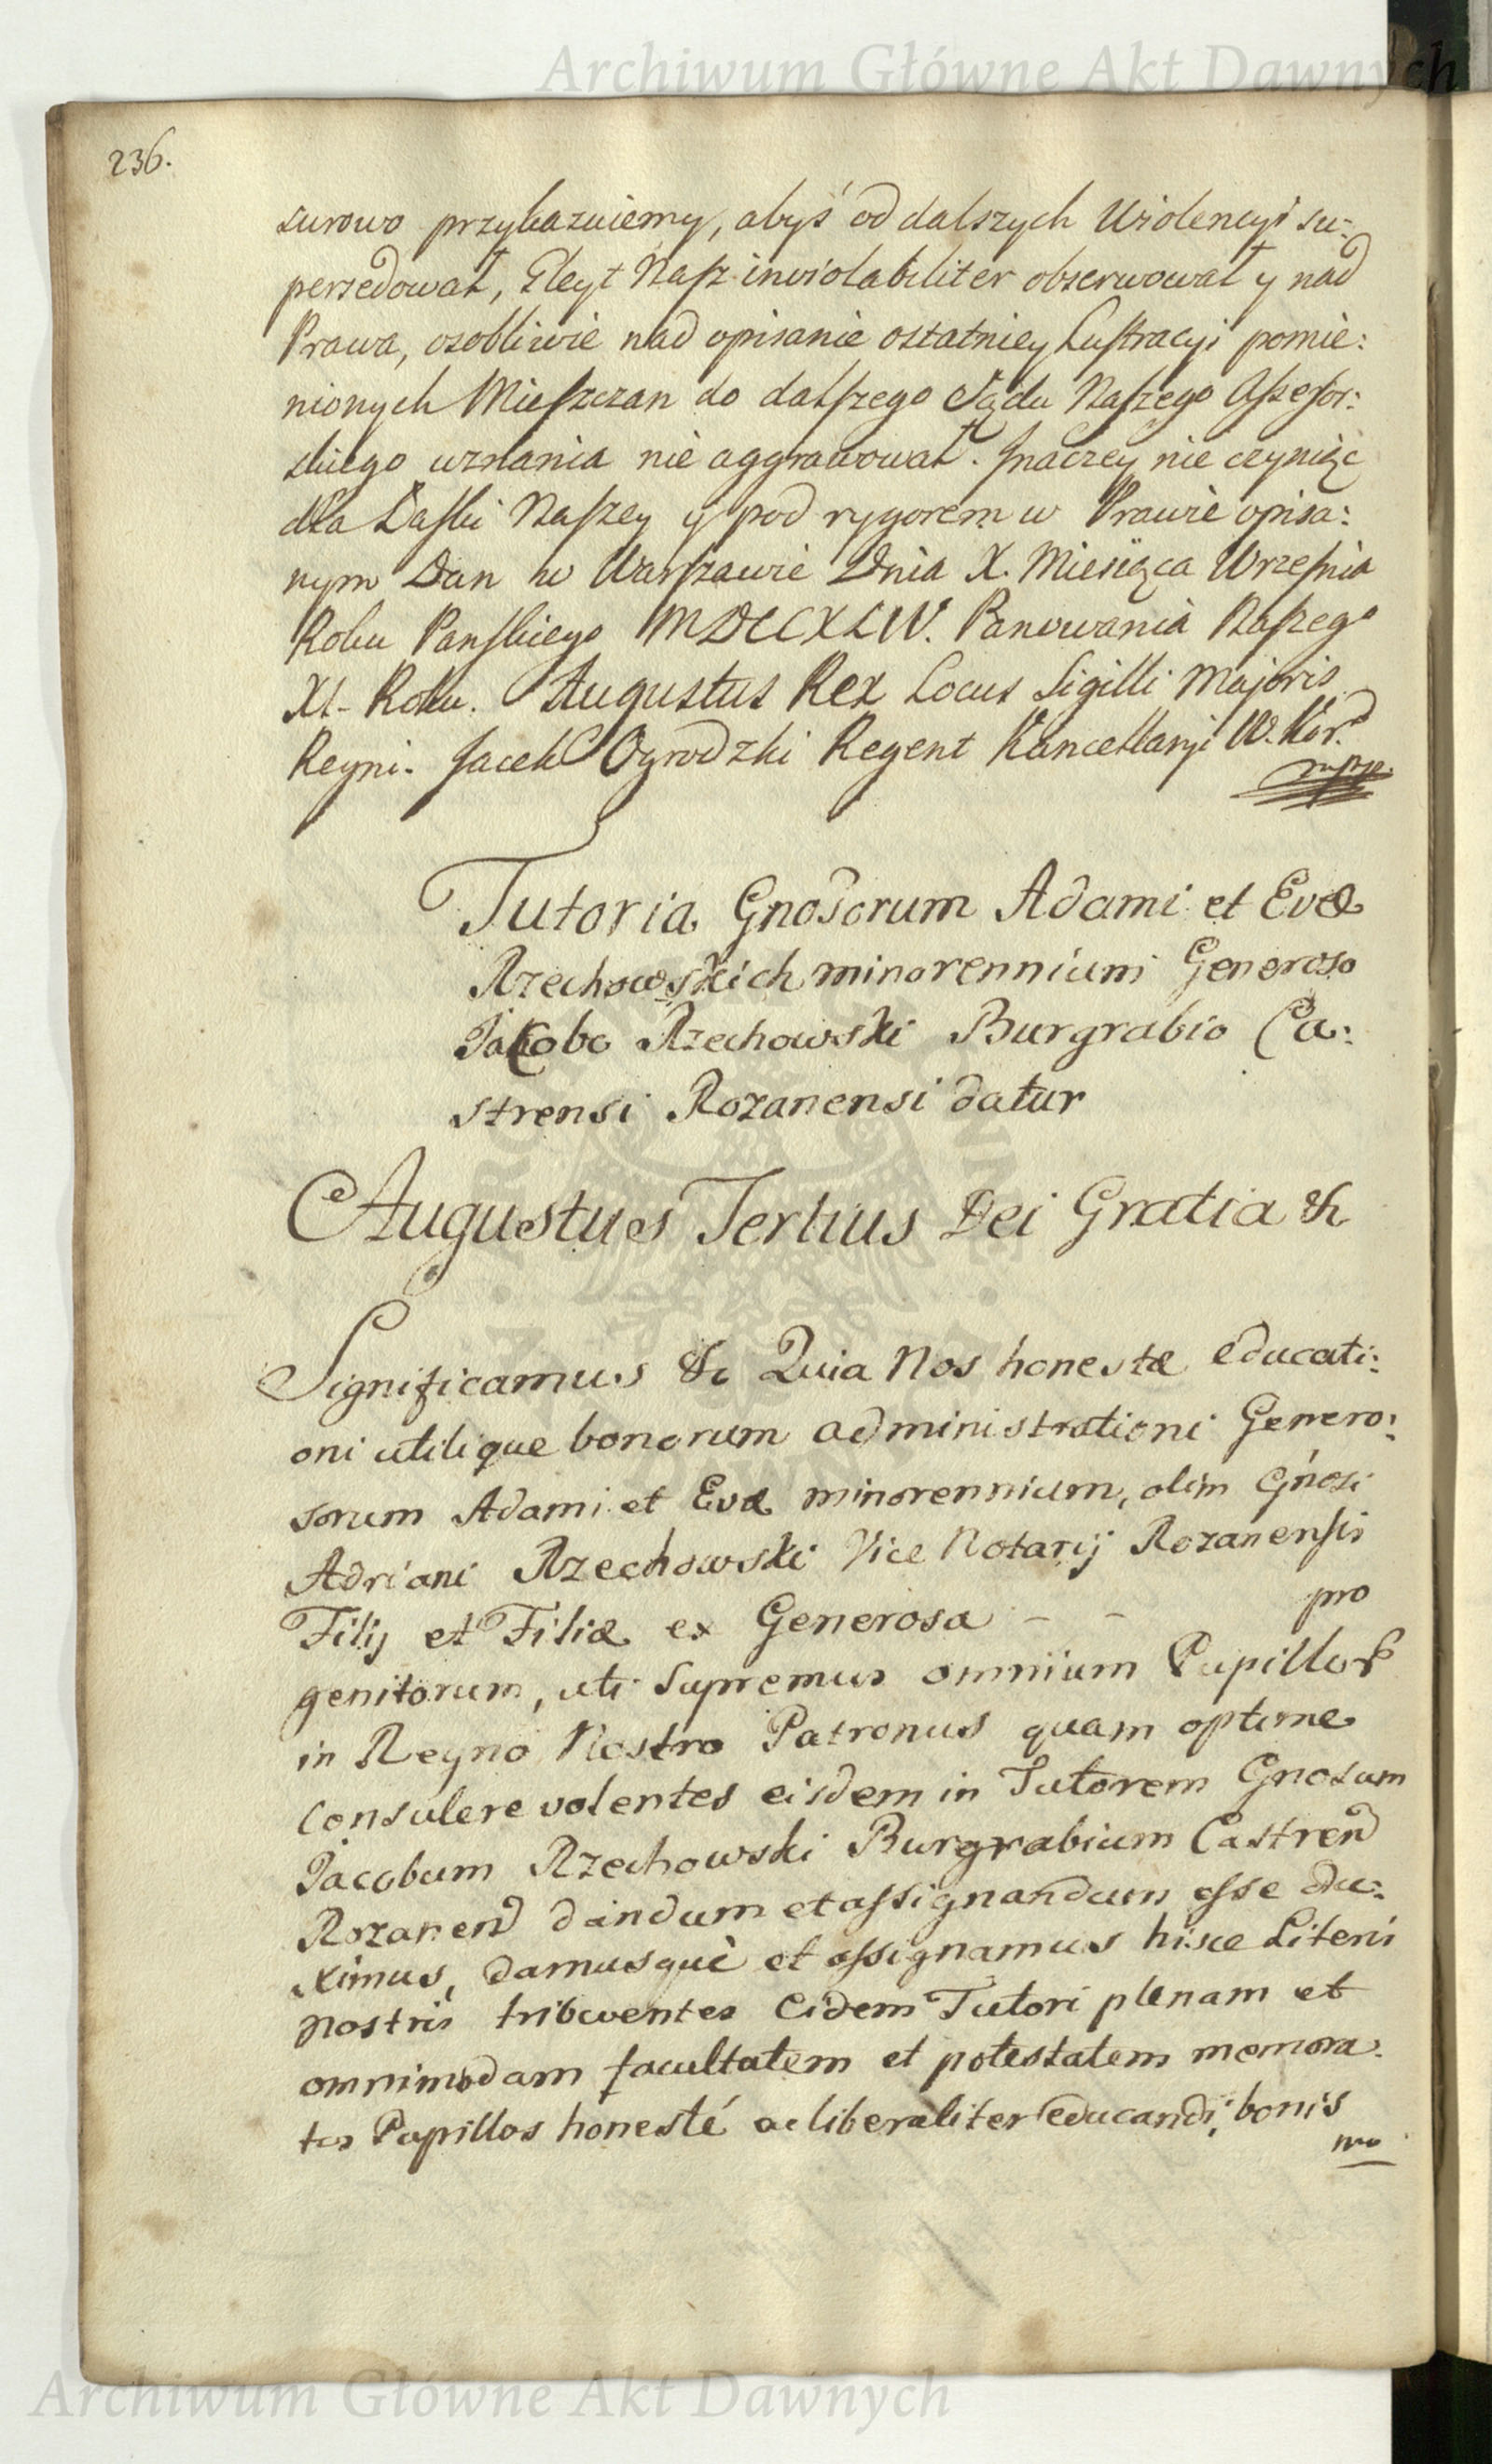 Archiwum Główne Akt Dawnych
236.
surowo przykazuiemy, abyś od dalszych Violencyi su:
persedował, Gleyt Nasz inviolabiliter obserwował y nad
Prawa, osobliwie nad opisanie ostatniey Lustracyi pomie:
nionych Mieszczan do dalszego Sądu Naszego Assesor:
skiego uznania nie aggrawował. Inaczey nie czyniąc
dla Łaski Naszey y pod rygorem w Prawie opisa:
nym Dan w Warszawie Dnia X. Miesiąca Września
Roku Pańskiego MDCCXLIV. Panowania Naszego
XI. Roku. Augustus Rex Locus Sigilli Majoris
Regni. Jacek Ogrodzki Regent Kancellaryi W. Kor.
mppp.
Tutoria Gnosorum Adami et Evæ
Rzechowskich minorennium Generoso
Jacobo Rzechowski Burgrabio Ca:
strensi Rozanensi datur
Augustus Tertius Dei Gratia &
Significamus & Quia Nos honestæ educati:
oni utilique bonorum administrationi Genero:
sorum Adami et Evæ minorennium, olim Gnosi
Adriani Rzechowski Vice Notarij Rozanensis
Filij et Filiæ ex Generosa – – pro
genitorum, uti Supremus omnium Pupillor
in Regno Nostro Patronus quam optime
Consulere volentes eisdem in Tutorem Gnosum
Jacobum Rzechowski Burgrabium Castren
Rozanen dandum et assignandum esse du:
ximus, damusque et assignamus hisce Literis
nostris tribuentes Eidem Tutori plenam et
omnimodam facultatem et potestatem memora:
tos Pupillos honesté ac liberaliter educandi, bonis
Archiwum Główne Akt Dawnych